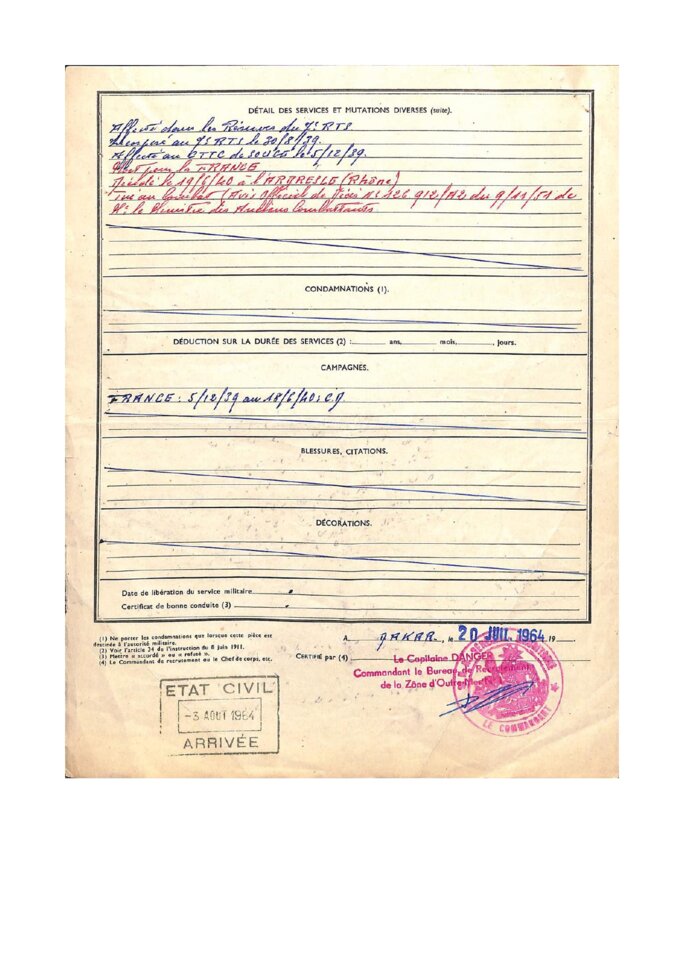 DÉTAIL DES SERVICES ET MUTATIONS DIVERSES (suite).
Affecté dans les Réserves du 7e RTS
Incorporé au 7e RTS le 30/8/39.
Affecté au CTTC de SOUGE le 5/12/39.
Mort pour la FRANCE
Décédé le 19/6/40 à l'ARBRESLE (Rhône)
Tué au Combat (Avis Officiel de Décès N° 426 912/M2 du 9/11/51 de
Mr le Ministre des Anciens Combattants
CONDAMNATIONS (1).
DÉDUCTION SUR LA DURÉE DES SERVICES (2) : ans, mois, jours.
CAMPAGNES.
FRANCE : 5/12/39 au 18/6/40
BLESSURES, CITATIONS.
DÉCORATIONS.
Date de libération du service militaire
Certificat de bonne conduite (3)
(1) Ne porter les condamnations que lorsque cette pièce est
destinée à l'autorité militaire.
(2) Voir l'article 34 de l'instruction du 8 juin 1911.
(3) Mettre « accordé » ou « refusé ».
(4) Le Commandant de recrutement ou le Chef de corps, etc.
A DAKAR, le 20 JUIL 1964 19
CERTIFIÉ par (4)
Le Capitaine DANGER
Commandant le Bureau de Recrutement
de la Zône d'Outre-Mer
LE COMMANDANT
ETAT CIVIL
-3 AOUT 1964
ARRIVÉE